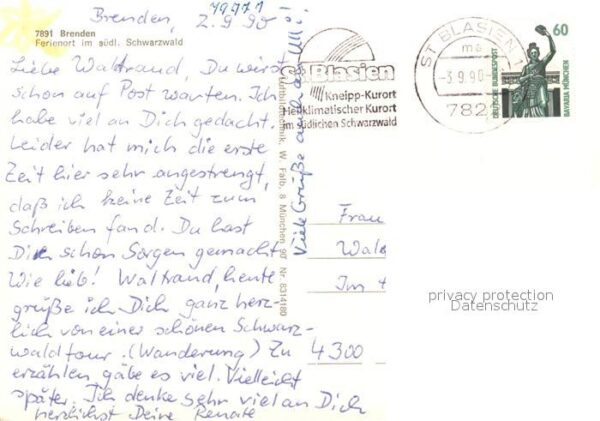 19971
Brenden, 2.9.90
7891 Brenden
Ferienort im südl. Schwarzwald
Liebe Waltraud, Du wirst
schon auf Post warten. Ich
habe viel an Dich gedacht.
Leider hat mich die erste
Zeit hier sehr angestrengt,
daß ich keine Zeit zum
Schreiben fand. Du hast
Dich schon Sorgen gemacht
Wie lieb! Waltraud, heute
grüße ich Dich ganz herz-
lich von einer schönen Schwarz-
waldtour. (Wanderung) Zu
erzählen gäbe es viel. Vielleicht
später. Ich denke sehr viel an Dich
herzlichst Deine Renate
Viele Grüße auch an Ulli!
W. Falb, 8 München 90 Nr. 8314180
St. Blasien
Kneipp-Kurort
Heilklimatischer Kurort
im südlichen Schwarzwald
ST BLASIEN 1
ma
-3.9.90-
782
60
DEUTSCHE BUNDESPOST
BAVARIA MÜNCHEN
Frau
Wal
Im
4300
privacy protection
Datenschutz